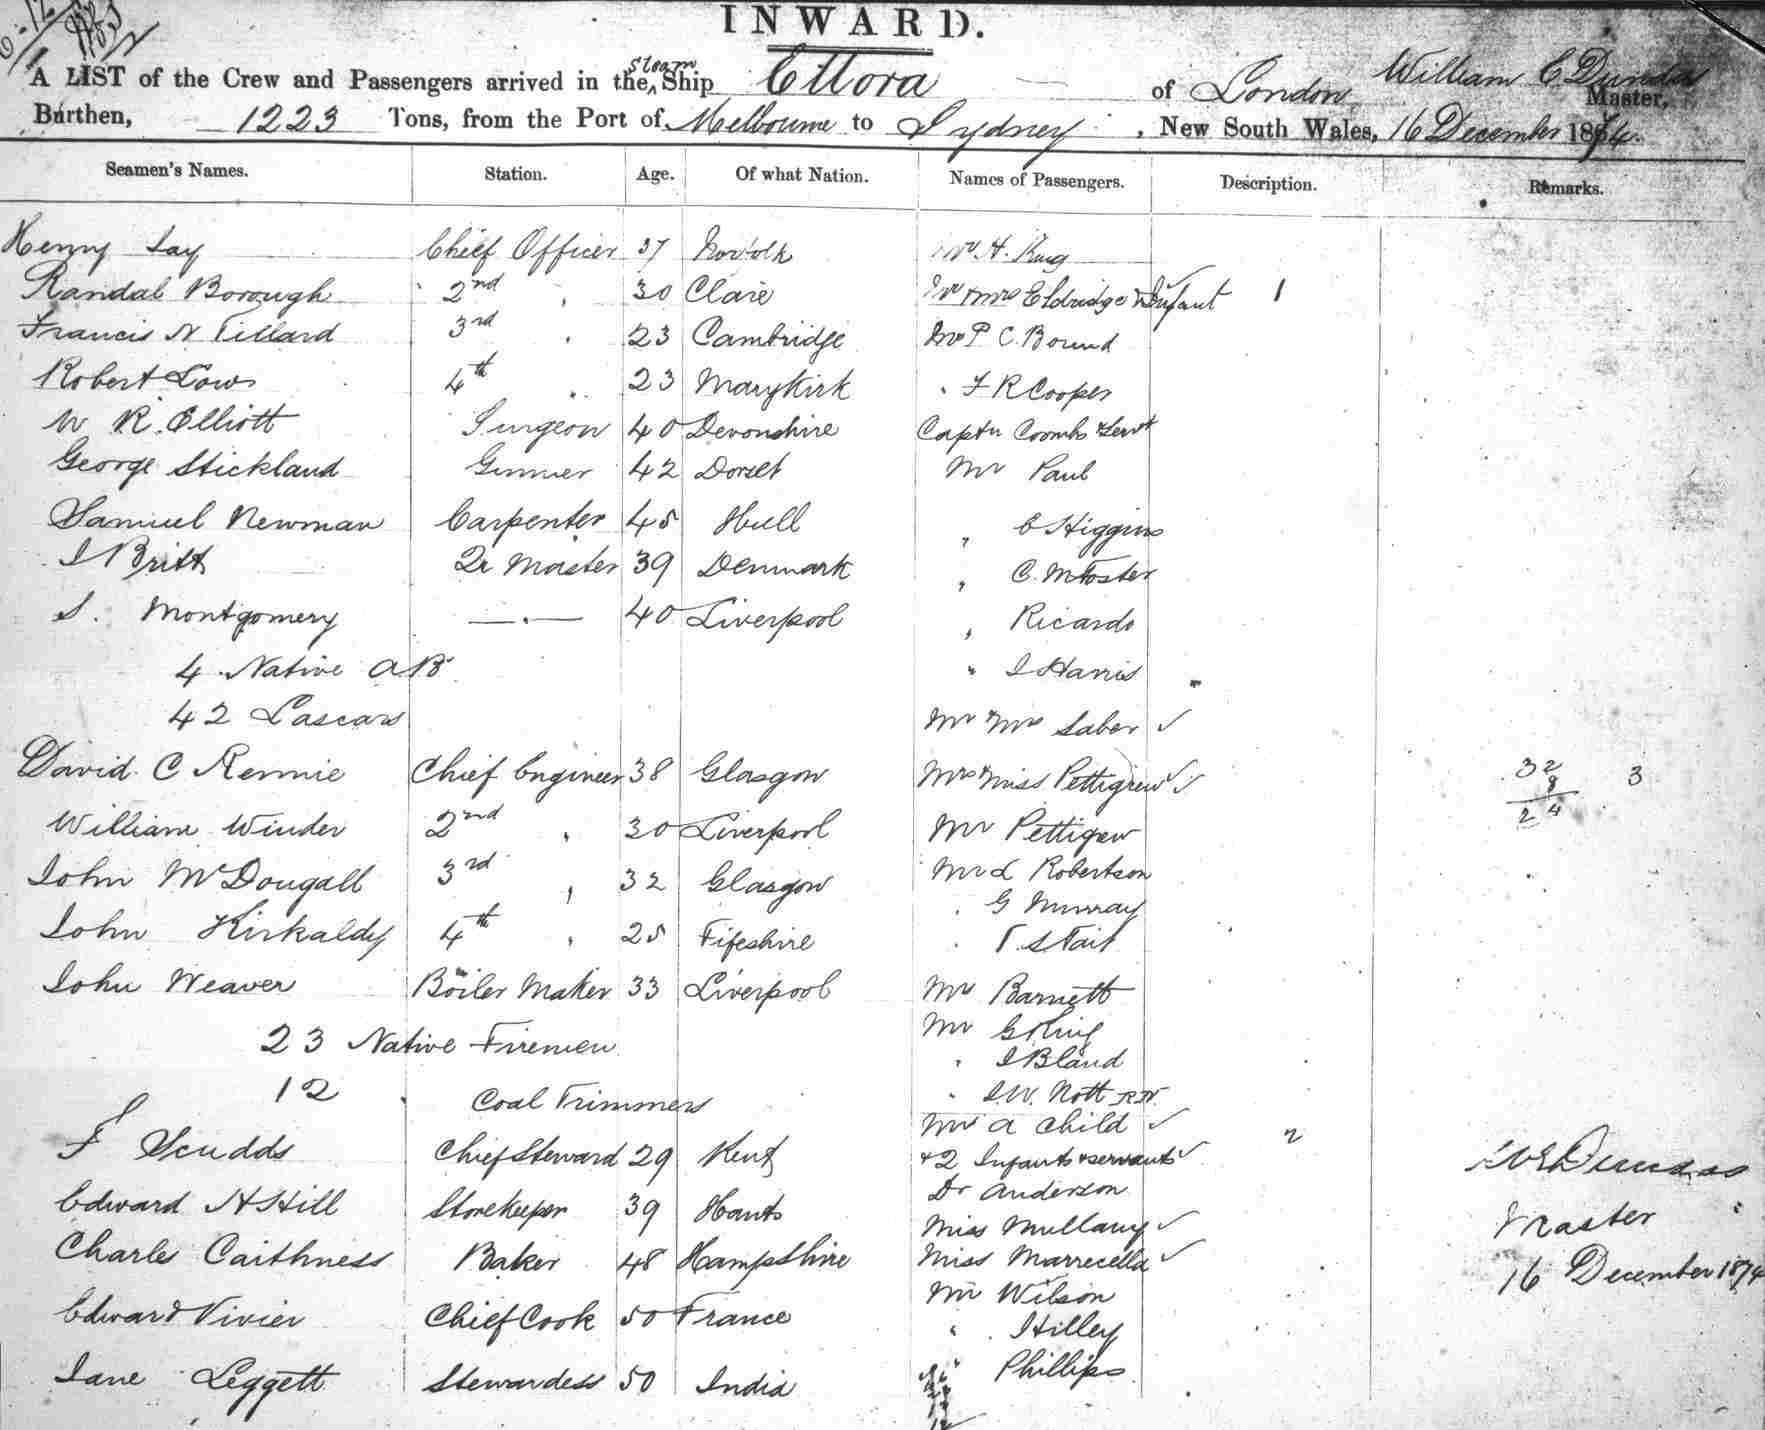 INWARD.
A LIST of the Crew and Passengers arrived in the Steam Ship Ellora of London William E Dundas Master,
Burthen, 1223 Tons, from the Port of Melbourne to Sydney, New South Wales, 16 December 1874.
Seamen's Names. Station. Age. Of what Nation. Names of Passengers. Description. Remarks.
Henry Lay Chief Officer 37 Norfolk Mr H. King
Randal Borough 2nd " 30 Clare Mr & Mrs Eldridge & Infant 1
Francis N Tillard 3rd " 23 Cambridge Mr P C. Bound
Robert Low 4th " 23 Marykirk " F R Cooper
W R. Elliott Surgeon 40 Devonshire Captn Coombs & Servt
George Stickland Gunner 42 Dorset Mr Paul
Samuel Newman Carpenter 45 Hull " C Higgins
J Britt Qr Master 39 Denmark " C. M Foster
S. Montgomery —"— 40 Liverpool " Ricardo
4 Native AB " J Harris "
42 Lascars Mr & Mrs Saber ✓
David C Rennie Chief Engineer 38 Glasgow Mrs & Miss Pettigrew ✓ ✓ 32 3
8
William Winder 2nd " 30 Liverpool Mr Pettigrew 24
John McDougall 3rd " 32 Glasgow Mr L Robertson
" G Murray
John Kirkaldy 4th " 25 Fifeshire " T. S Tait
John Weaver Boiler Maker 33 Liverpool Mr Barnett
23 Native Firemen Mr G King
" J Bland
12 " Coal Trimmers " J. W. Nott R.N.
Mrs A Child ✓
F Scudds Chief Steward 29 Kent & 2 Infants & servants ✓ 2 W E Dundas
Edward H Hill Storekeeper 39 Hants Dr Anderson
Miss Mullany ✓ Master
Charles Caithness Baker 48 Hampshire Miss Marrecella ✓ 16 December 1874
Mr Wilson
Edward Vivier Chief Cook 50 France " J Hilley
Jane Leggett Stewardess 50 India " Phillips